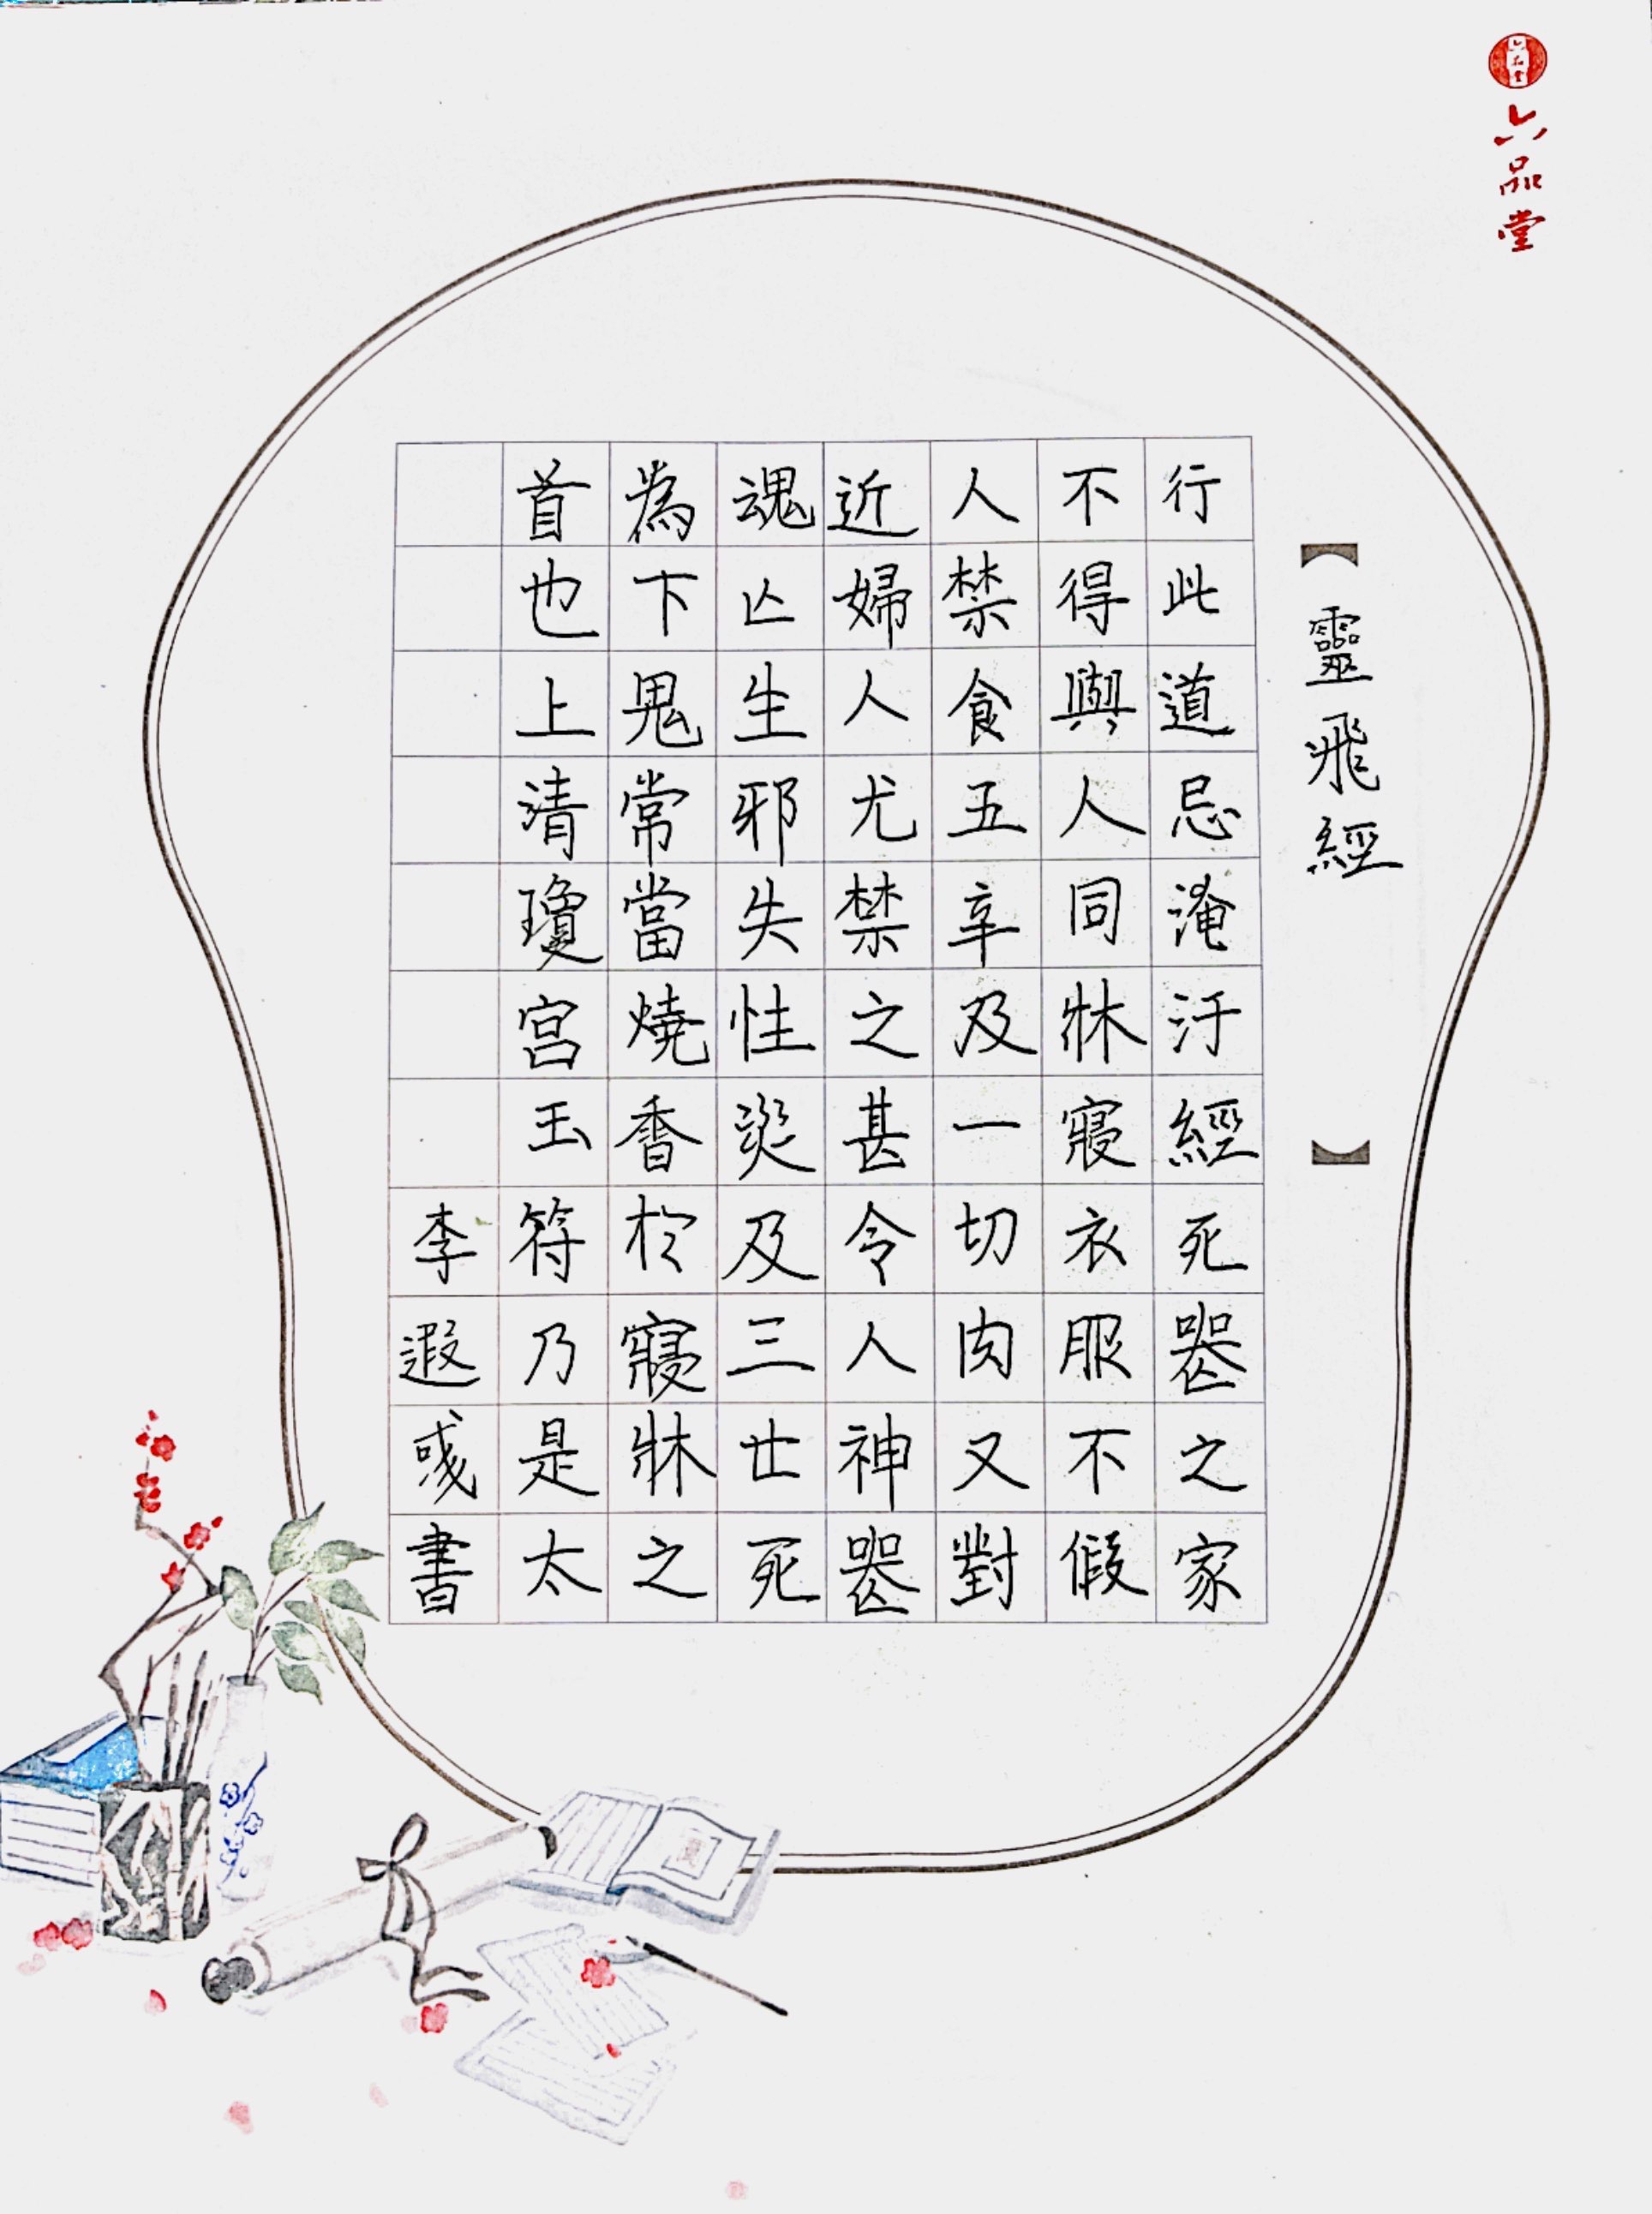 六品堂
【靈飛經】
行此道忌淹汙經死喪之家
不得與人同牀寢衣服不假
人禁食五辛及一切肉又對
近婦人尤禁之甚令人神喪
魂亡生邪失性災及三世死
為下鬼常當燒香於寢牀之
首也上清瓊宮玉符乃是太
李遐彧書